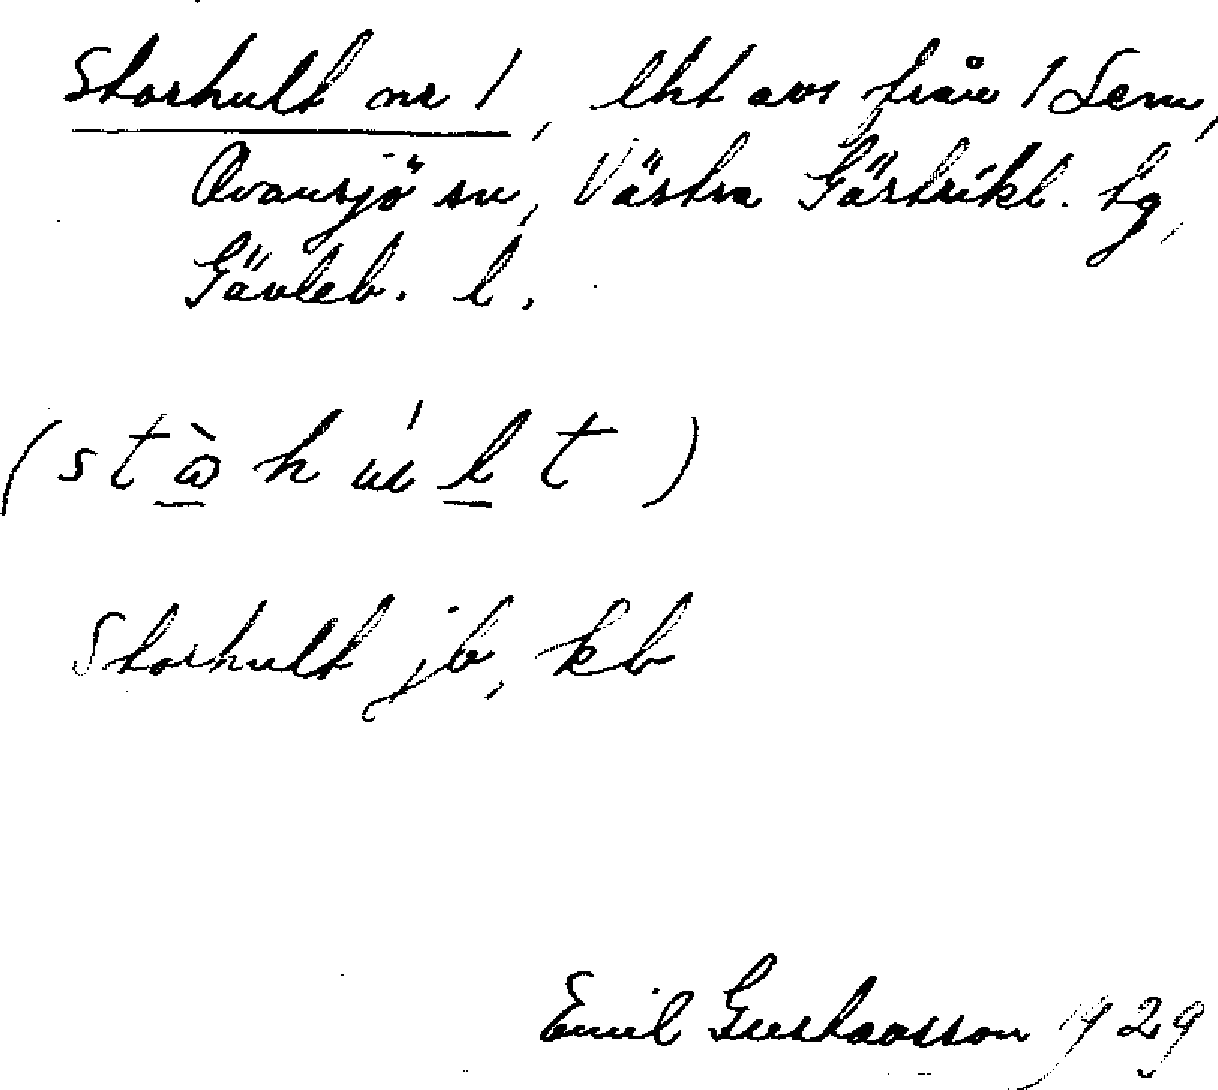 Storhult nr 1, lht avs från 1 Sem,
Ovansjö sn, Västra Gästrikl. tg,
Gävleb. l.
Storhult jb, kb
Emil Gustavsson 1929